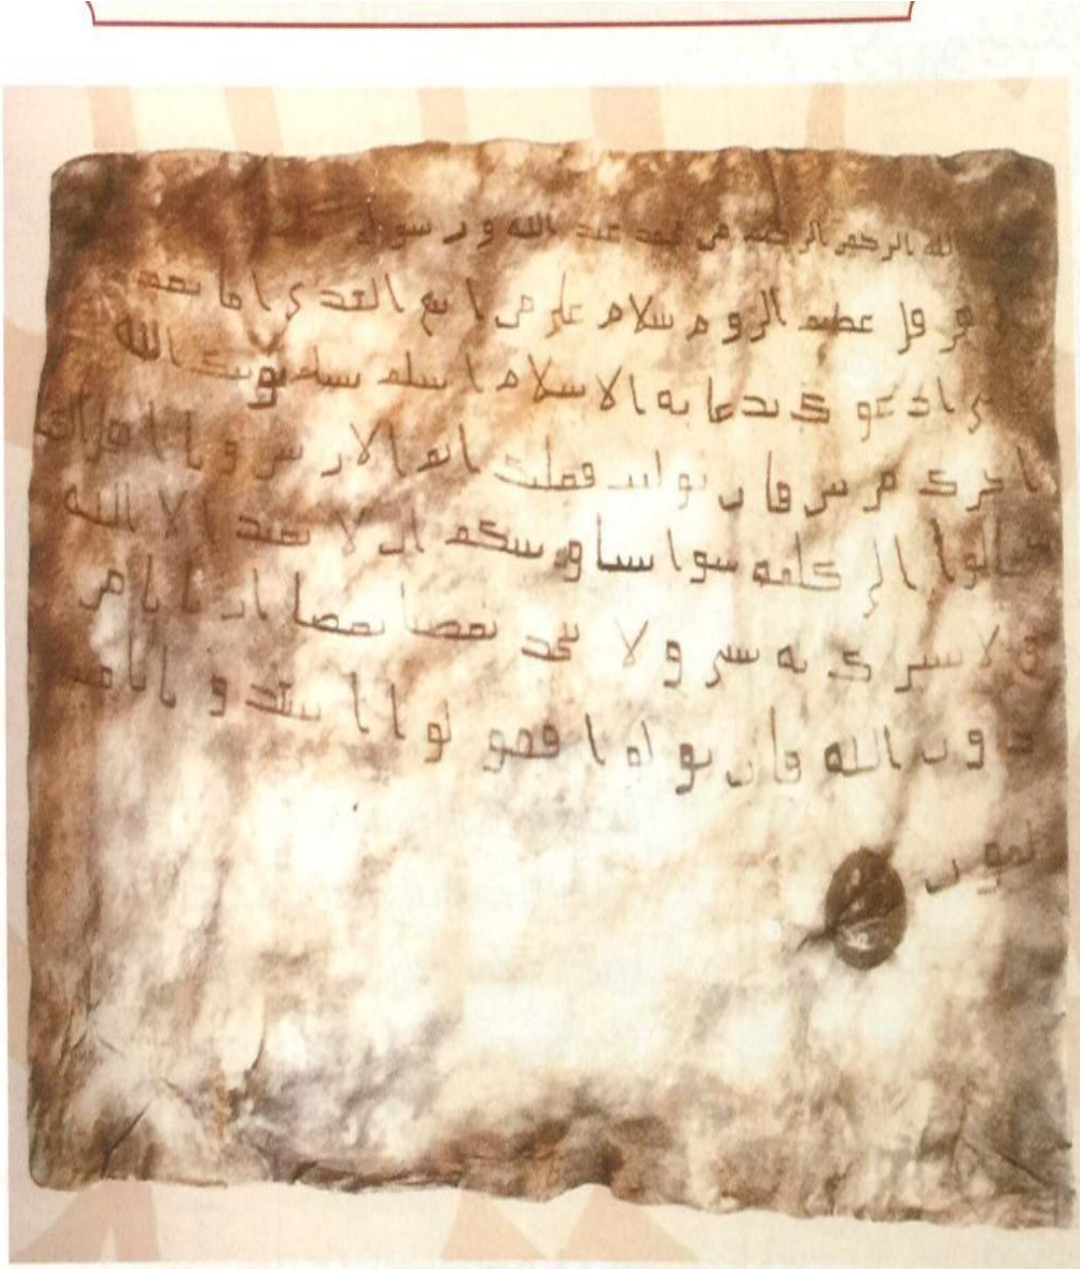 الله الرحمن الرحيم من محمد عبد الله ورسوله
هرقل عظيم الروم سلام على من اتبع الهدى اما بعد
ادعوك بدعايه الاسلام اسلم تسلم يوتك الله
اجرك مرتين فان توليت فعليك اثم الاريسين ويا اهل الك
تعالوا الى كلمه سوا بيننا وبينكم ان لا نعبد الا الله
ولا نشرك به شى ولا يتخذ بعضنا بعضا اربابا من
دون الله فان تولوا فقولوا اشهدوا بانا م
لمون